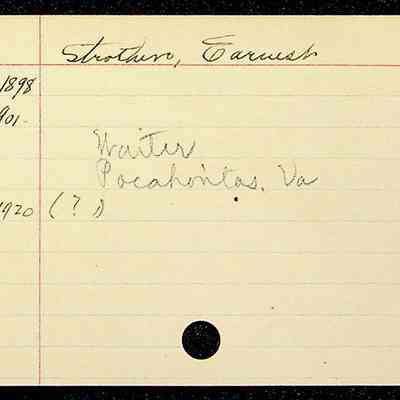 Strothers, Earnest
1898
901.
Waiter
Pocahontas, Va
1920 (?)